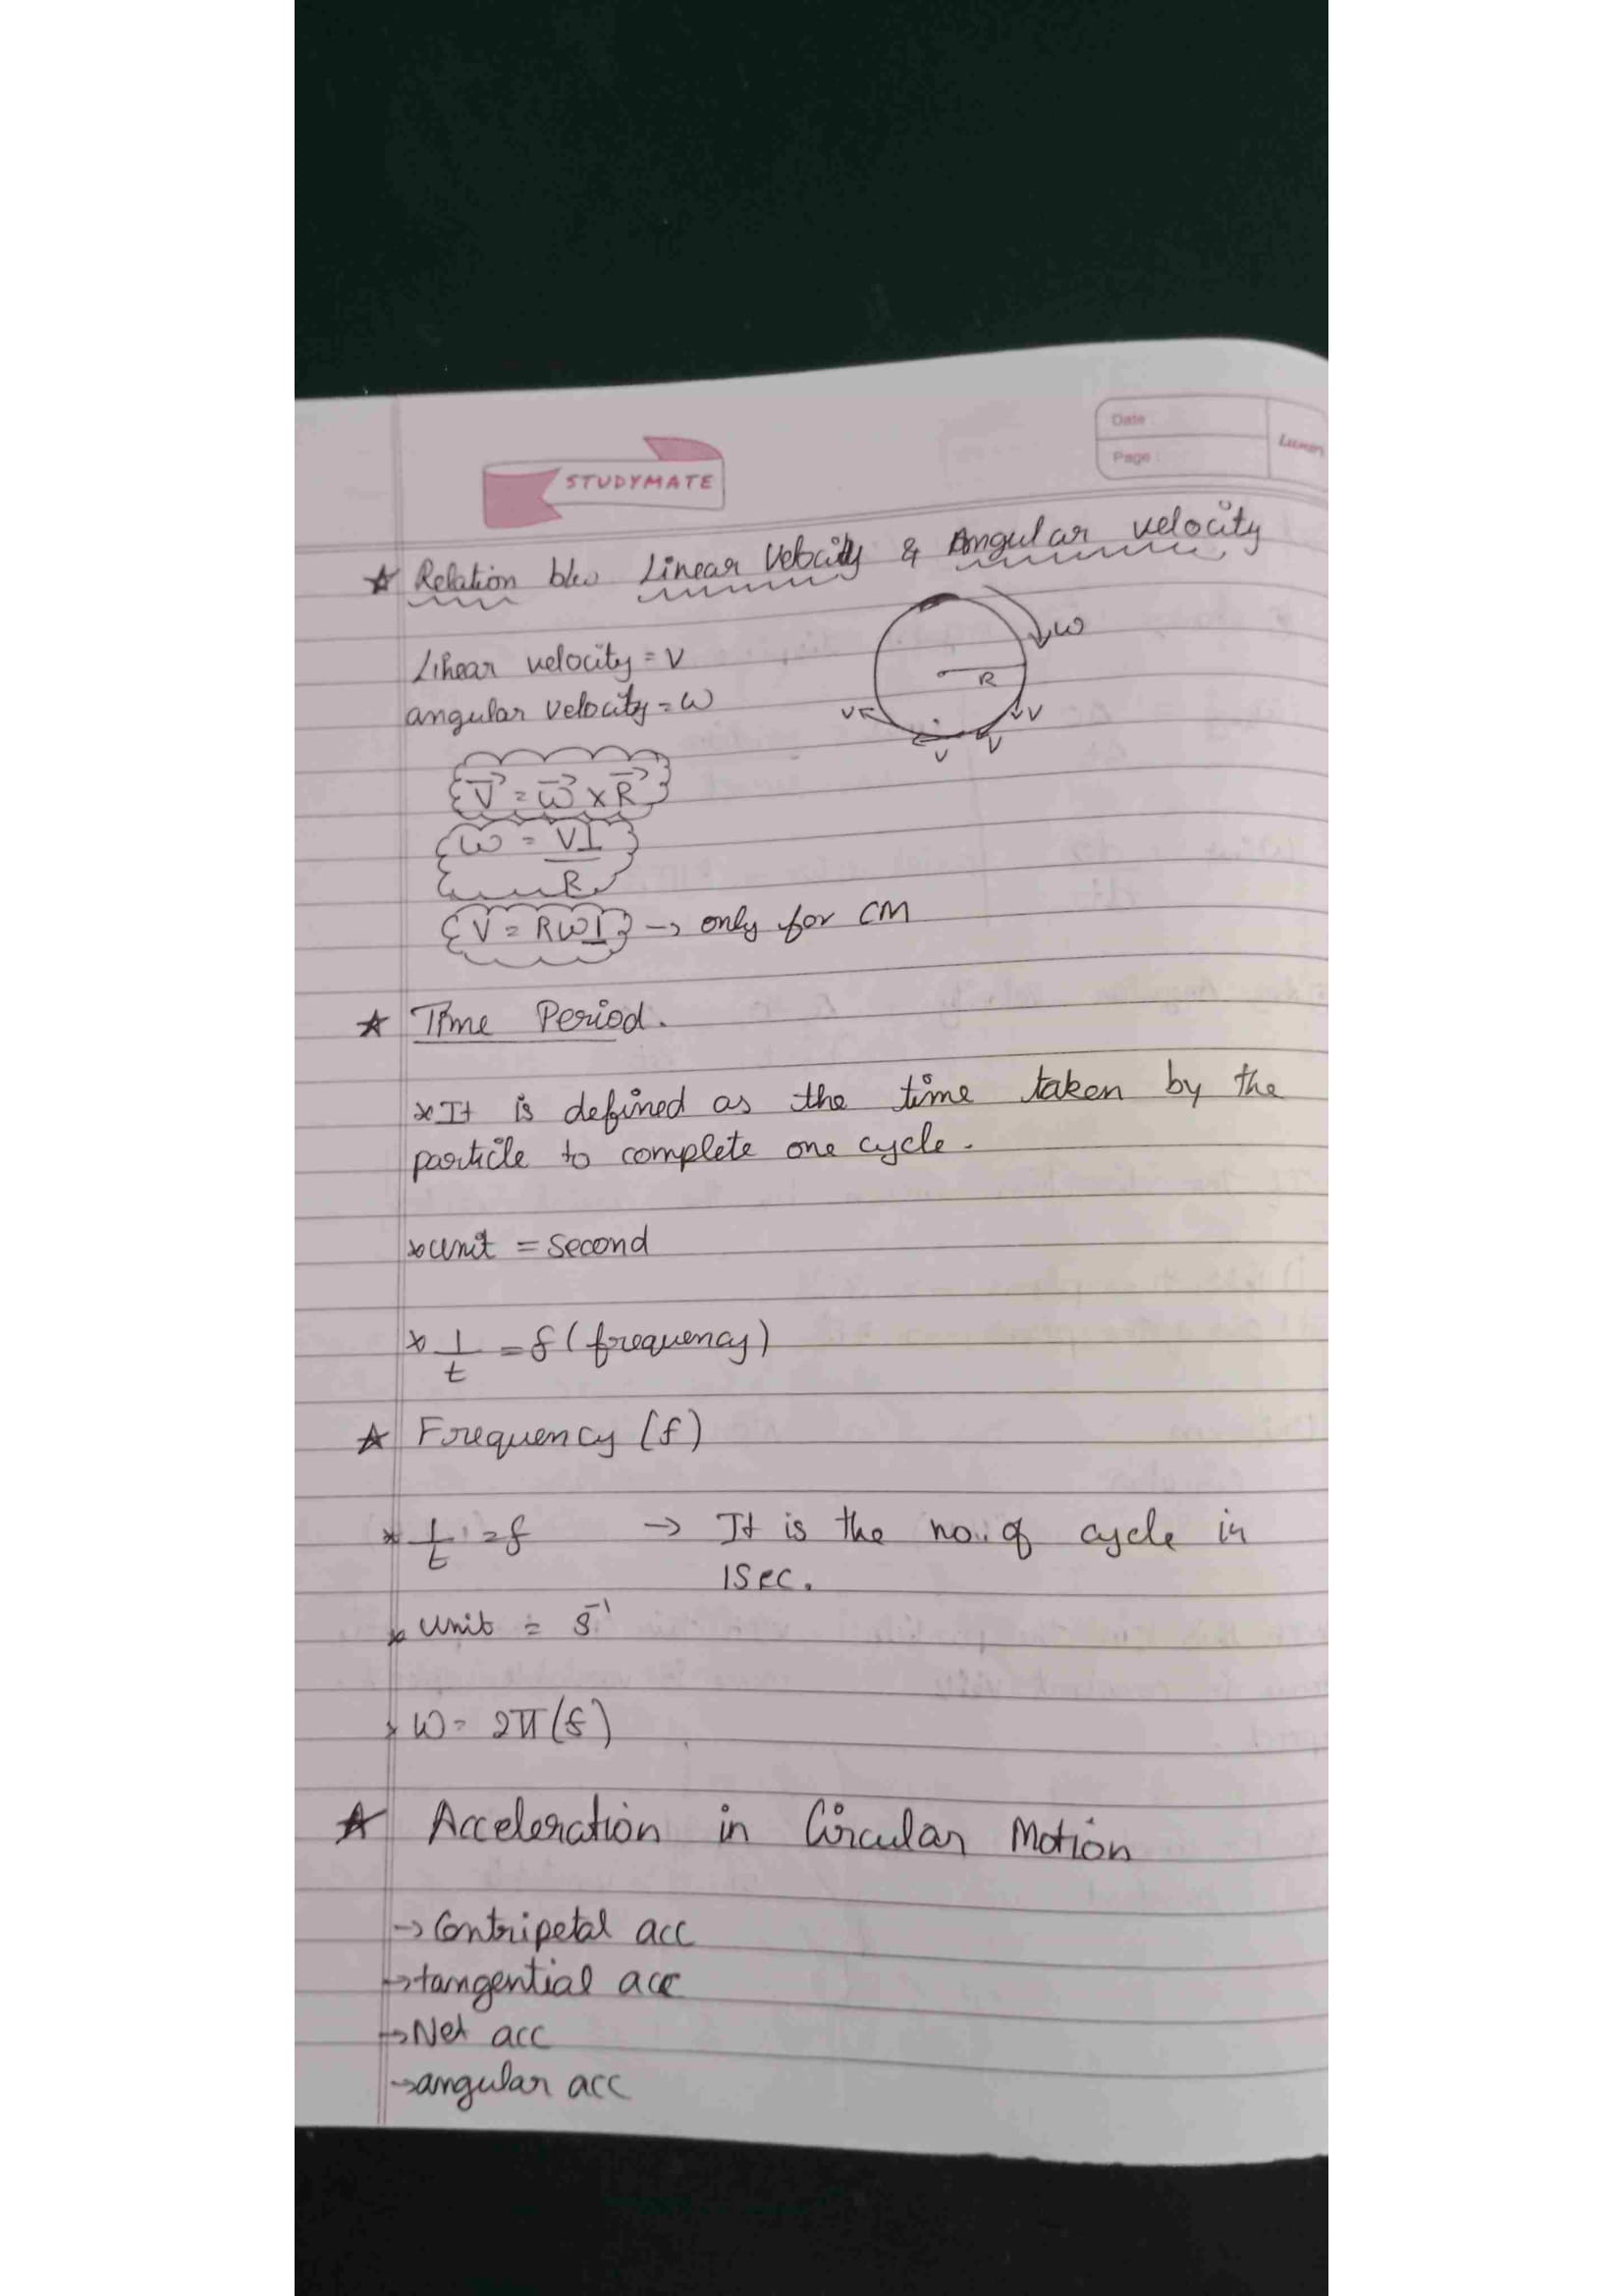 STUDYMATE
Date :
Page :
Luxor
☆ Relation b/w Linear Velocity & Angular velocity
Linear velocity = V
angular velocity = ω
ω
R
V
V
V
V
V⃗ = ω⃗ × R⃗
ω = V⊥
R
V = Rω⊥ → only for CM
☆ Time Period.
*It is defined as the time taken by the
particle to complete one cycle.
*unit = second
* 1/t = f (frequency)
☆ Frequency (f)
* 1/t = f → It is the no. of cycle in
1Sec.
* unit = s⁻¹
* ω = 2π(f)
☆ Acceleration in Circular Motion
→ Centripetal acc
→ tangential acc
→ Net acc
→ angular acc